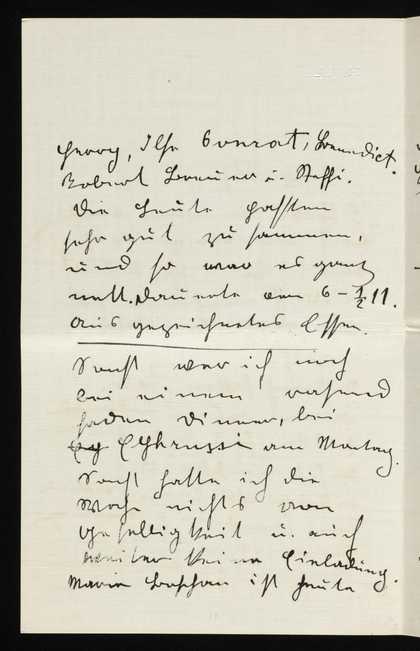 Georg, Ilse Conrat, Benedict.
Robert Breuer u. Steffi.
Die Leute passten
sehr gut zusammen,
und so war es ganz
nett. Dauerte von 6 – ½ 11.
ausgezeichnetes Essen.
Sonst war ich noch
bei einem rasend
faden Dinner, bei
Ephrussi am Montag.
Sonst hatte ich die
Woche nichts von
Geselligkeit u. auch
weiter keine Einladung.
Marie ist heute